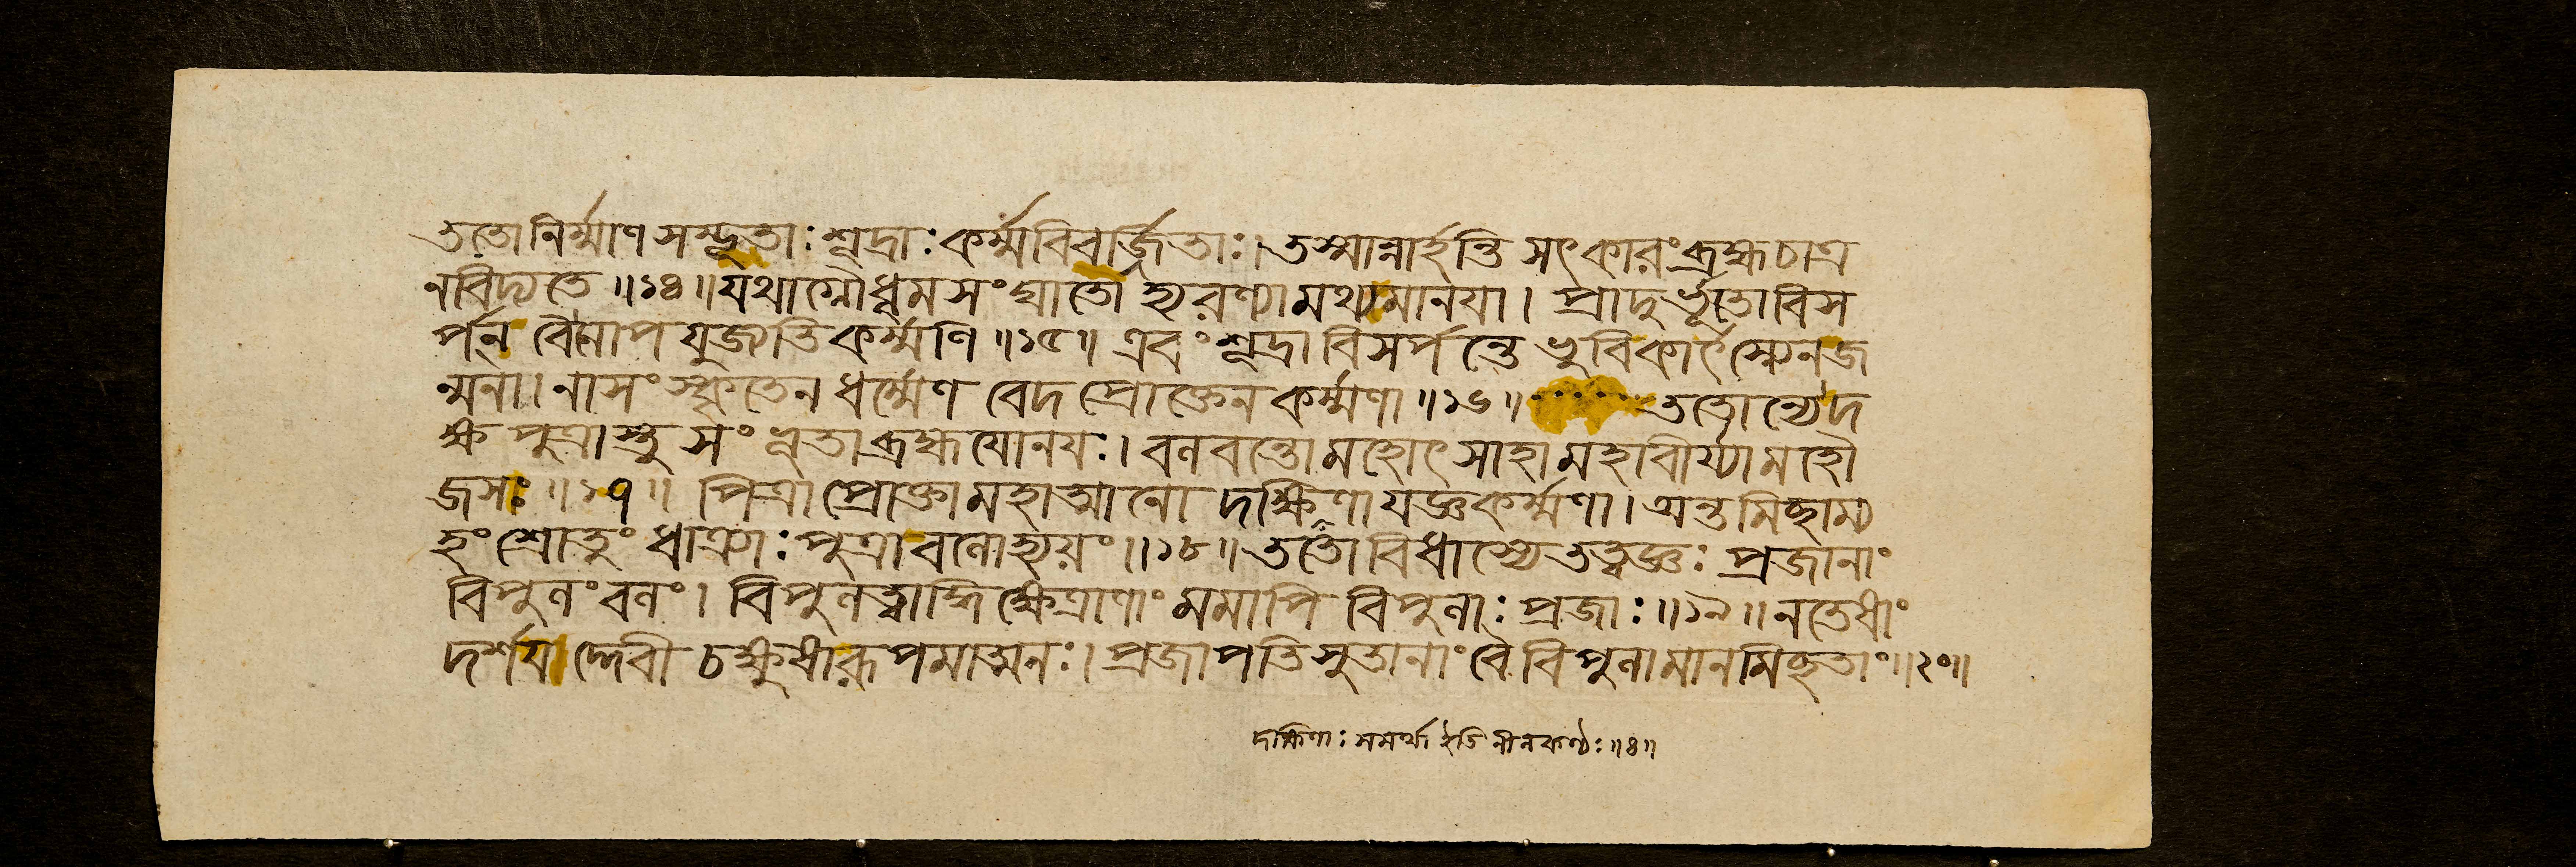 ততোনির্ম্মাণসম্ভূতাঃশূদ্রাঃকর্ম্মবিবর্জ্জিতাঃ।তস্মান্নার্হন্তিসৎকারংব্রহ্মচাত্র
নবিদ্যতে॥১৪॥যথাগ্নৌধূমসংঘাতোহ্যরণ্যামথ্যমানয়া।প্রাদুর্ভূতোবিস
র্পন্ বৈনোপযুজ্যতিকর্ম্মণি॥১৫॥এবংশূদ্রাবিসর্পন্তেভুবিকার্ৎস্ন্যেনজ
ন্মনা।নাসংস্কৃতেনধর্ম্মেণ বেদপ্রোক্তেনকর্ম্মণা॥১৬॥ ততোন্যেদ
ক্ষপুত্রাস্তুসংভূতাব্রহ্মযোনয়ঃ।বলবন্তোমহোৎসাহামহাবীর্য্যামহৌ
জসঃ॥১৭॥পিত্রাপ্রোক্তামহাত্মানো দক্ষিণাযজ্ঞকর্ম্মণা।অন্তমিচ্ছাম্য
হংশ্রোতুংধাত্র্যাঃপুত্রাবলোহ্যয়ং॥১৮॥ততোবিধাস্যেতত্ত্বজ্ঞঃ প্রজানাং
বিপুলংবলং।বিপুলত্বাদ্ধিক্ষেত্রাণাংমমাপি বিপুলাঃপ্রজাঃ॥১৯॥নতেষাং
দর্শয়াদ্দেবী চক্ষুষারূপমাত্মনঃ।প্রজাপতিসুতানাংবৈবিপুলামানমিচ্ছতাং॥২০॥
দক্ষিণাঃসমর্থা ইতি নীলকণ্ঠঃ॥৪॥